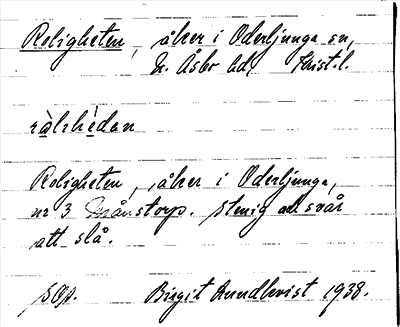 Roligheten, åker i Oderljunga sn,
N. Åsbo hd, Krist. l.
ràlrhèdan
Roligheten, åker i Oderljunga,
nr 3 Månstorp. Stenig och svår
att slå.
sop. Birgit Lundkvist 1938.